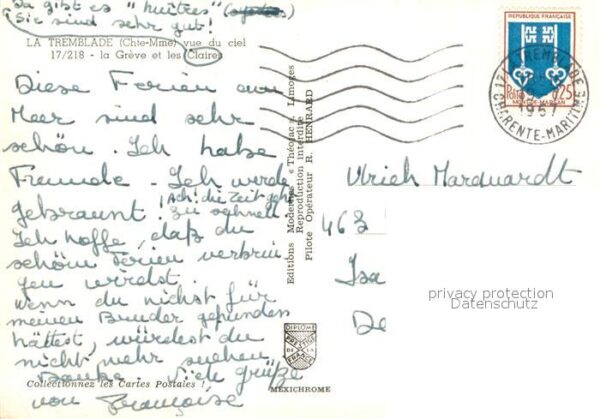 Da gibt es "huîtres"
(Sie sind sehr gut!
LA TREMBLADE (Chte-Mme) vue du ciel
17/218 - la Grève et les Claires
Diese Ferien am
Meer sind sehr
schön. Ich habe
Freunde. Ich werde
gebraunt! Ach! die Zeit geht
zu schnell!
Ich hoffe, daß du
schöne Ferien verbrin
gen wirst.
Wenn du nichst für
meinen Bruder gefunden
hättest, würdest du
nicht mehr suchen
Danke. Viele grüße
von Françoise
Collectionnez les Cartes Postales !
Editions Modernes « Théojac », Limoges
Reproduction interdite
Pilote Opérateur R. HENRARD
DIPLOME
PRESTIGE
DE LA
FRANCE
MEXICHROME
REPUBLIQUE FRANÇAISE
Postes 0,25
MONT-DE-MARSAN
17 LA TREMBLADE
1967
CHARENTE-MARITIME
Ulrich Marquardt
463
Isa
De
privacy protection
Datenschutz